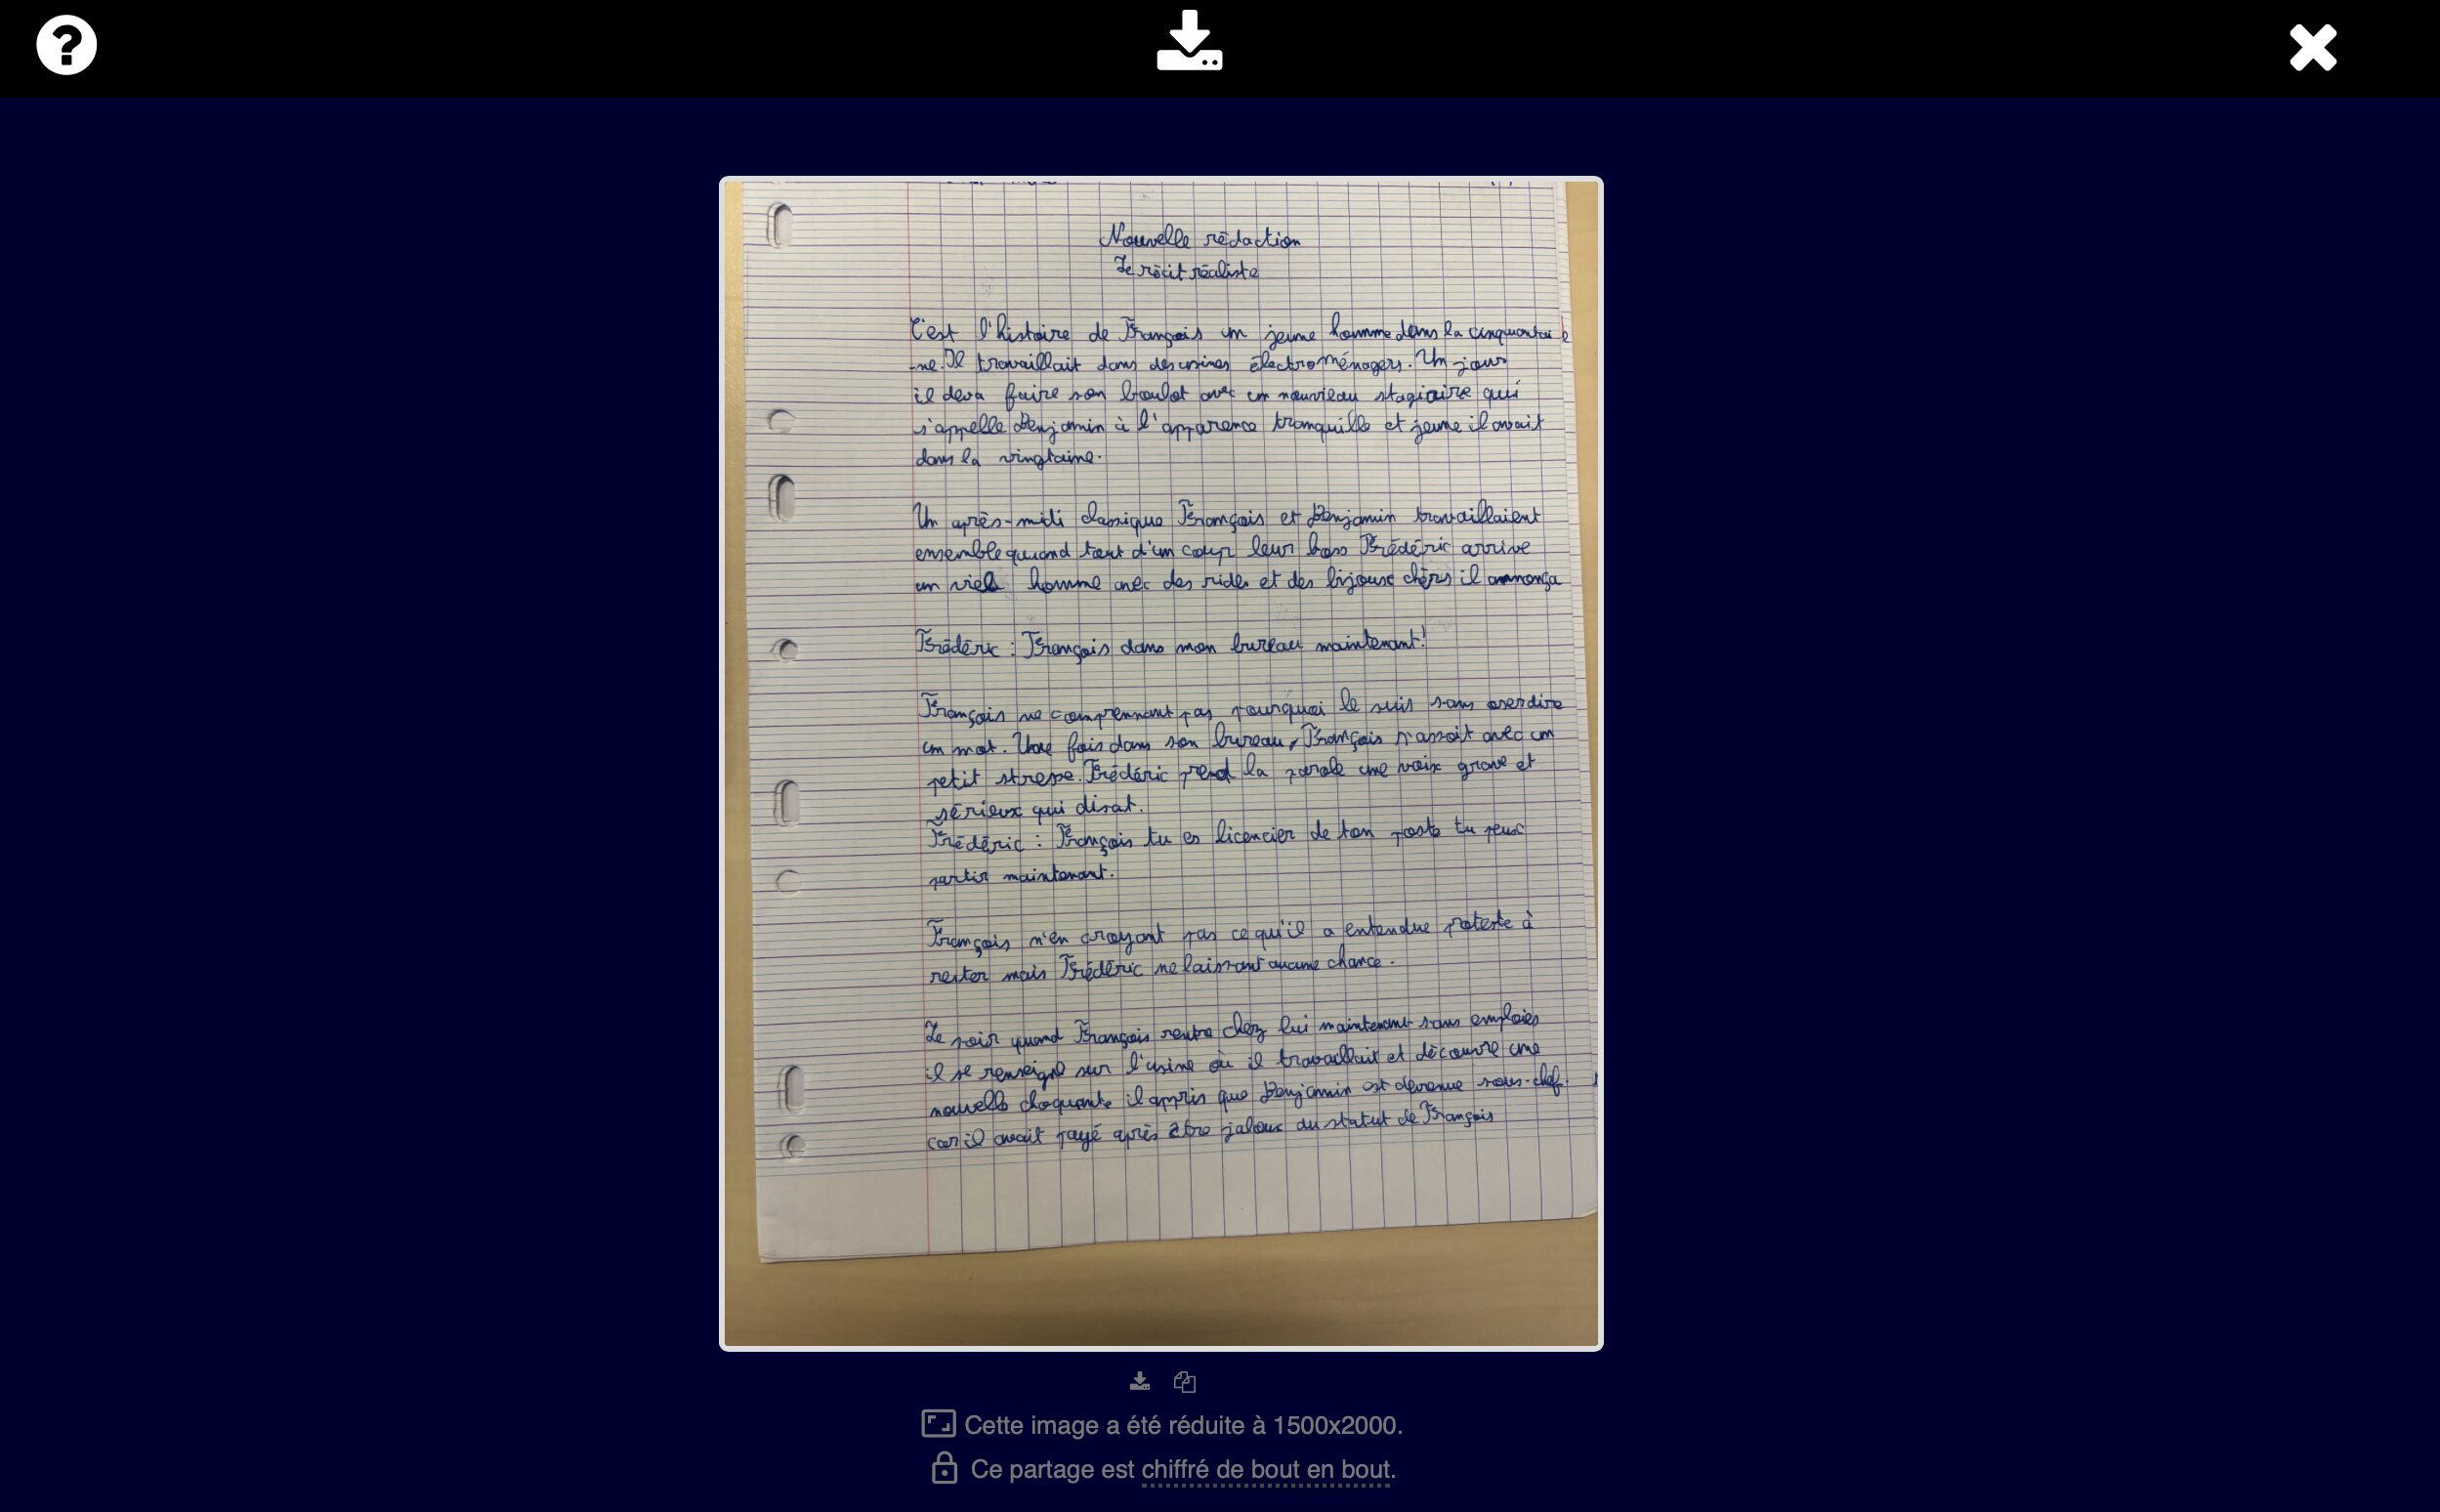 Nouvelle rédaction
Le récit réaliste
C'est l'histoire de François un jeune homme dans la cinquantai
-ne. Il travaillait dans des usines électroménagers. Un jour
il deva faire son boulot avec un nouveau stagiaire qui
s'appelle Benjamin à l'apparence tranquille et jeune il avait
dans la vingtaine.
Un après-midi classique François et Benjamin travaillaient
ensemble quand tout d'un coup leur boss Frédéric arrive
un viel homme avec des rides et des bijoux chèrs il annonça
Frédéric : François dans mon bureau maintenant!
François ne comprennant pas pourquoi le suis sans oser dire
un mot. Une fois dans son bureau, François s'assoit avec un
petit stresse. Frédéric prend la parole une voix grave et
sérieux qui disat.
Frédéric : François tu es licencier de ton poste tu peux
partir maintenant.
François n'en croyant pas ce qu'il a entendue proteste à
rester mais Frédéric ne laissant aucune chance.
Le soir quand François rentre chez lui maintenant sans emploies
il se renseigne sur l'usine où il travaillait et découvre une
nouvelle choquante il appris que Benjamin est devenue sous-chef
car il avait payé après être jaloux du statut de François
Cette image a été réduite à 1500x2000.
Ce partage est chiffré de bout en bout.